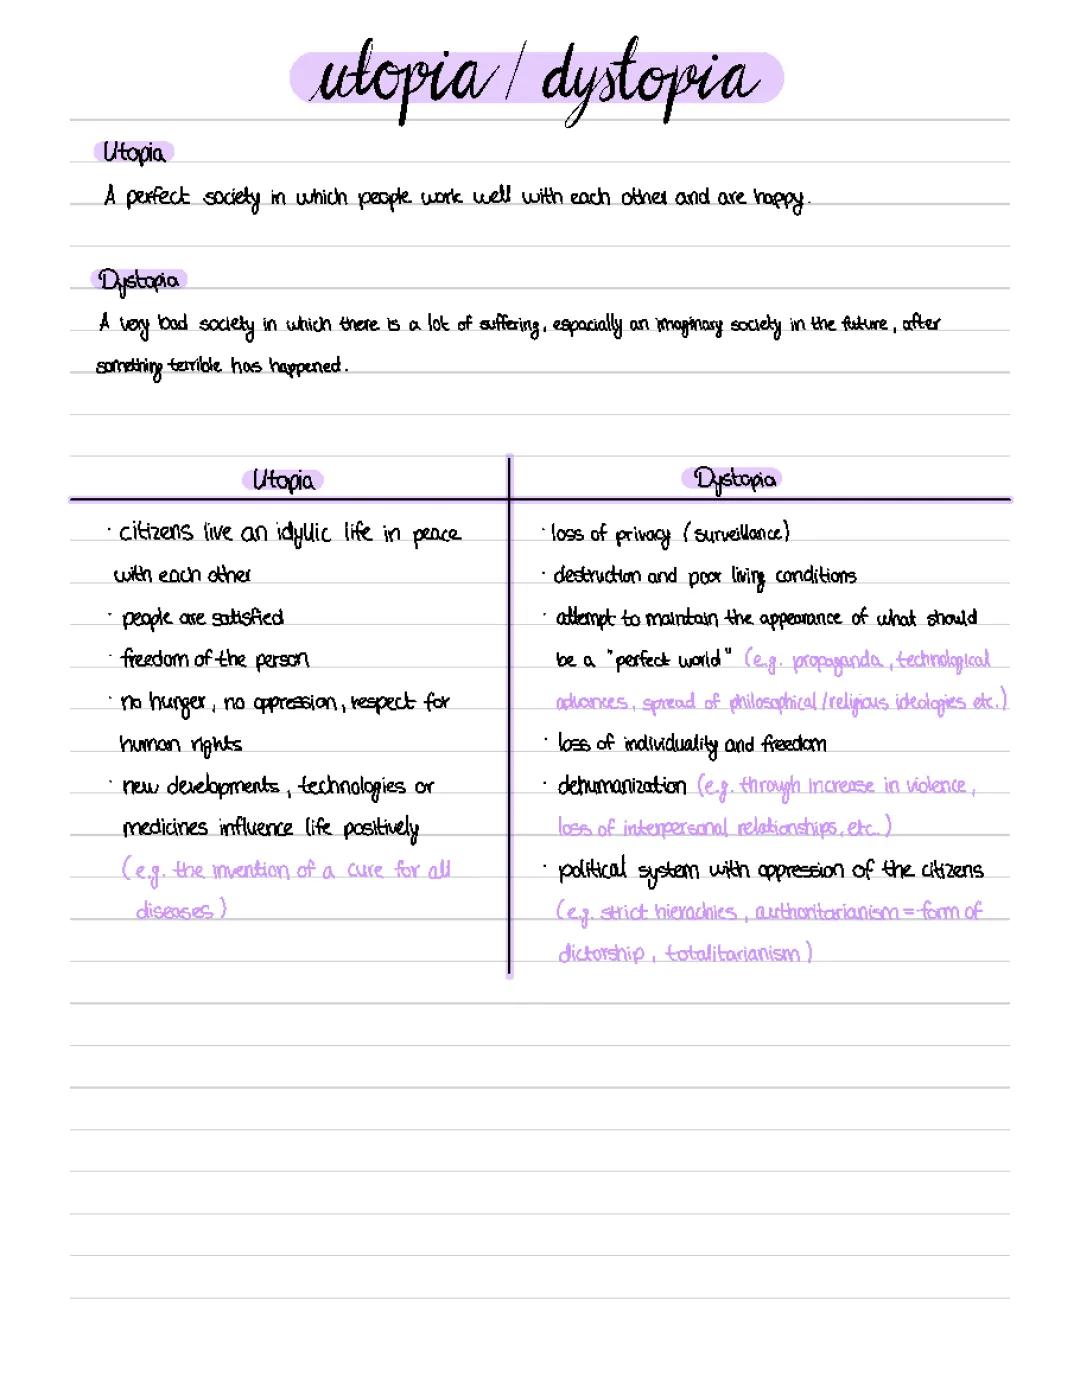 utopia / dystopia
Utopia
A perfect society in which people work well with each other and are happy.
Dystopia
A very bad society in which there is a lot of suffering, espacially an imaginary society in the future, after
something terrible has happened.
Utopia
· citizens live an idyllic life in peace
with each other
· people are satisfied
· freedom of the person
· no hunger, no oppression, respect for
human rights
· new developments, technologies or
medicines influence life positively
(e.g. the invention of a cure for all
diseases)
Dystopia
· loss of privacy (surveillance)
· destruction and poor living conditions
· attempt to maintain the appearance of what should
be a "perfect world" (e.g. propaganda, technological
advances, spread of philosophical/religious ideologies etc.)
· loss of individuality and freedom
· dehumanization (e.g. through increase in violence,
loss of interpersonal relationships, etc.)
· political system with oppression of the citizens
(e.g. strict hierachies, authoritarianism = form of
dictorship, totalitarianism)